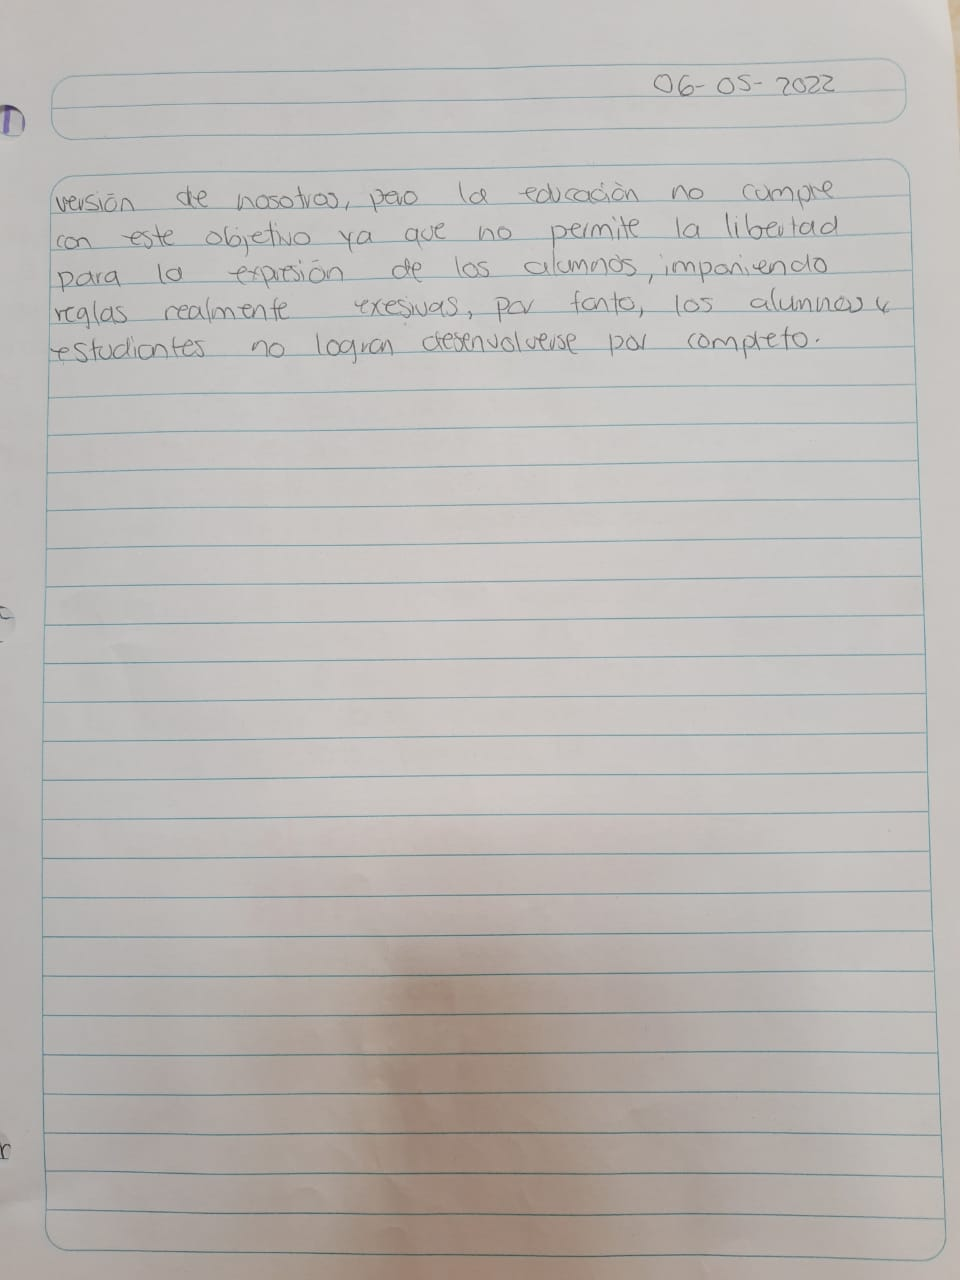 06-05-2022
versión de nosotros, pero la educación no cumpre
con este objetivo ya que no permite la libertad
para la expresión de los alumnos, imponiendo
reglas realmente exesivas, por tanto, los alumnos y
estudiantes no logran desenvolverse por completo.